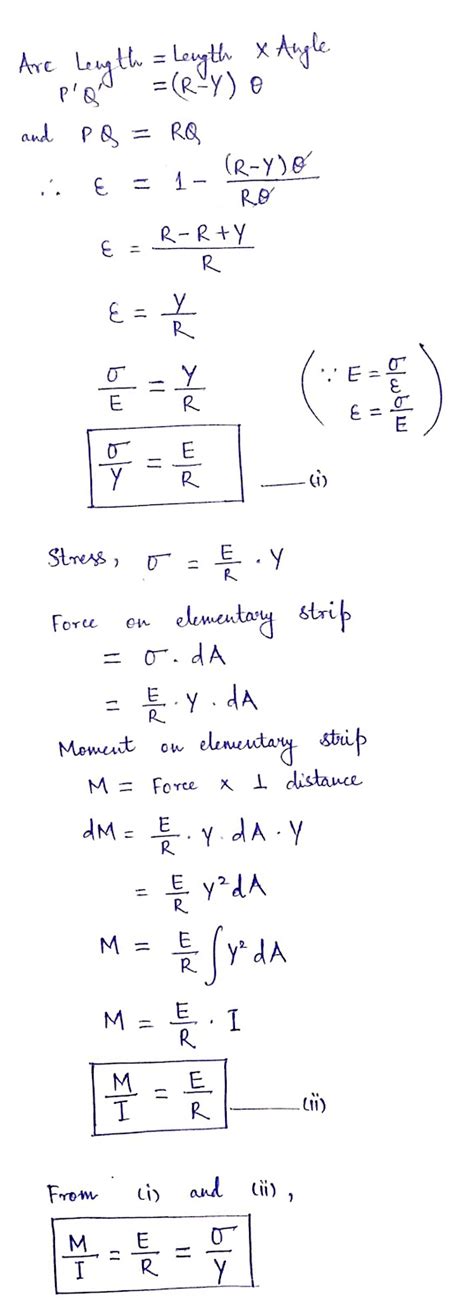 Arc Length = Length × Angle
P'Q' = (R-Y) θ
and PQ = RQ
∴ ε = 1 - (R-Y)θ / Rθ
ε = R-R+Y / R
ε = Y / R
σ / E = Y / R (∵ E = σ / ε
ε = σ / E)
σ / Y = E / R —— (i)
Stress, σ = E / R . Y
Force on elementary strip
= σ. dA
= E / R . Y . dA
Moment on elementary strip
M = Force × ⊥ distance
dM = E / R . Y. dA . Y
= E / R Y²dA
M = E / R ∫ Y² dA
M = E / R . I
M / I = E / R —— (ii)
From (i) and (ii),
M / I = E / R = σ / Y